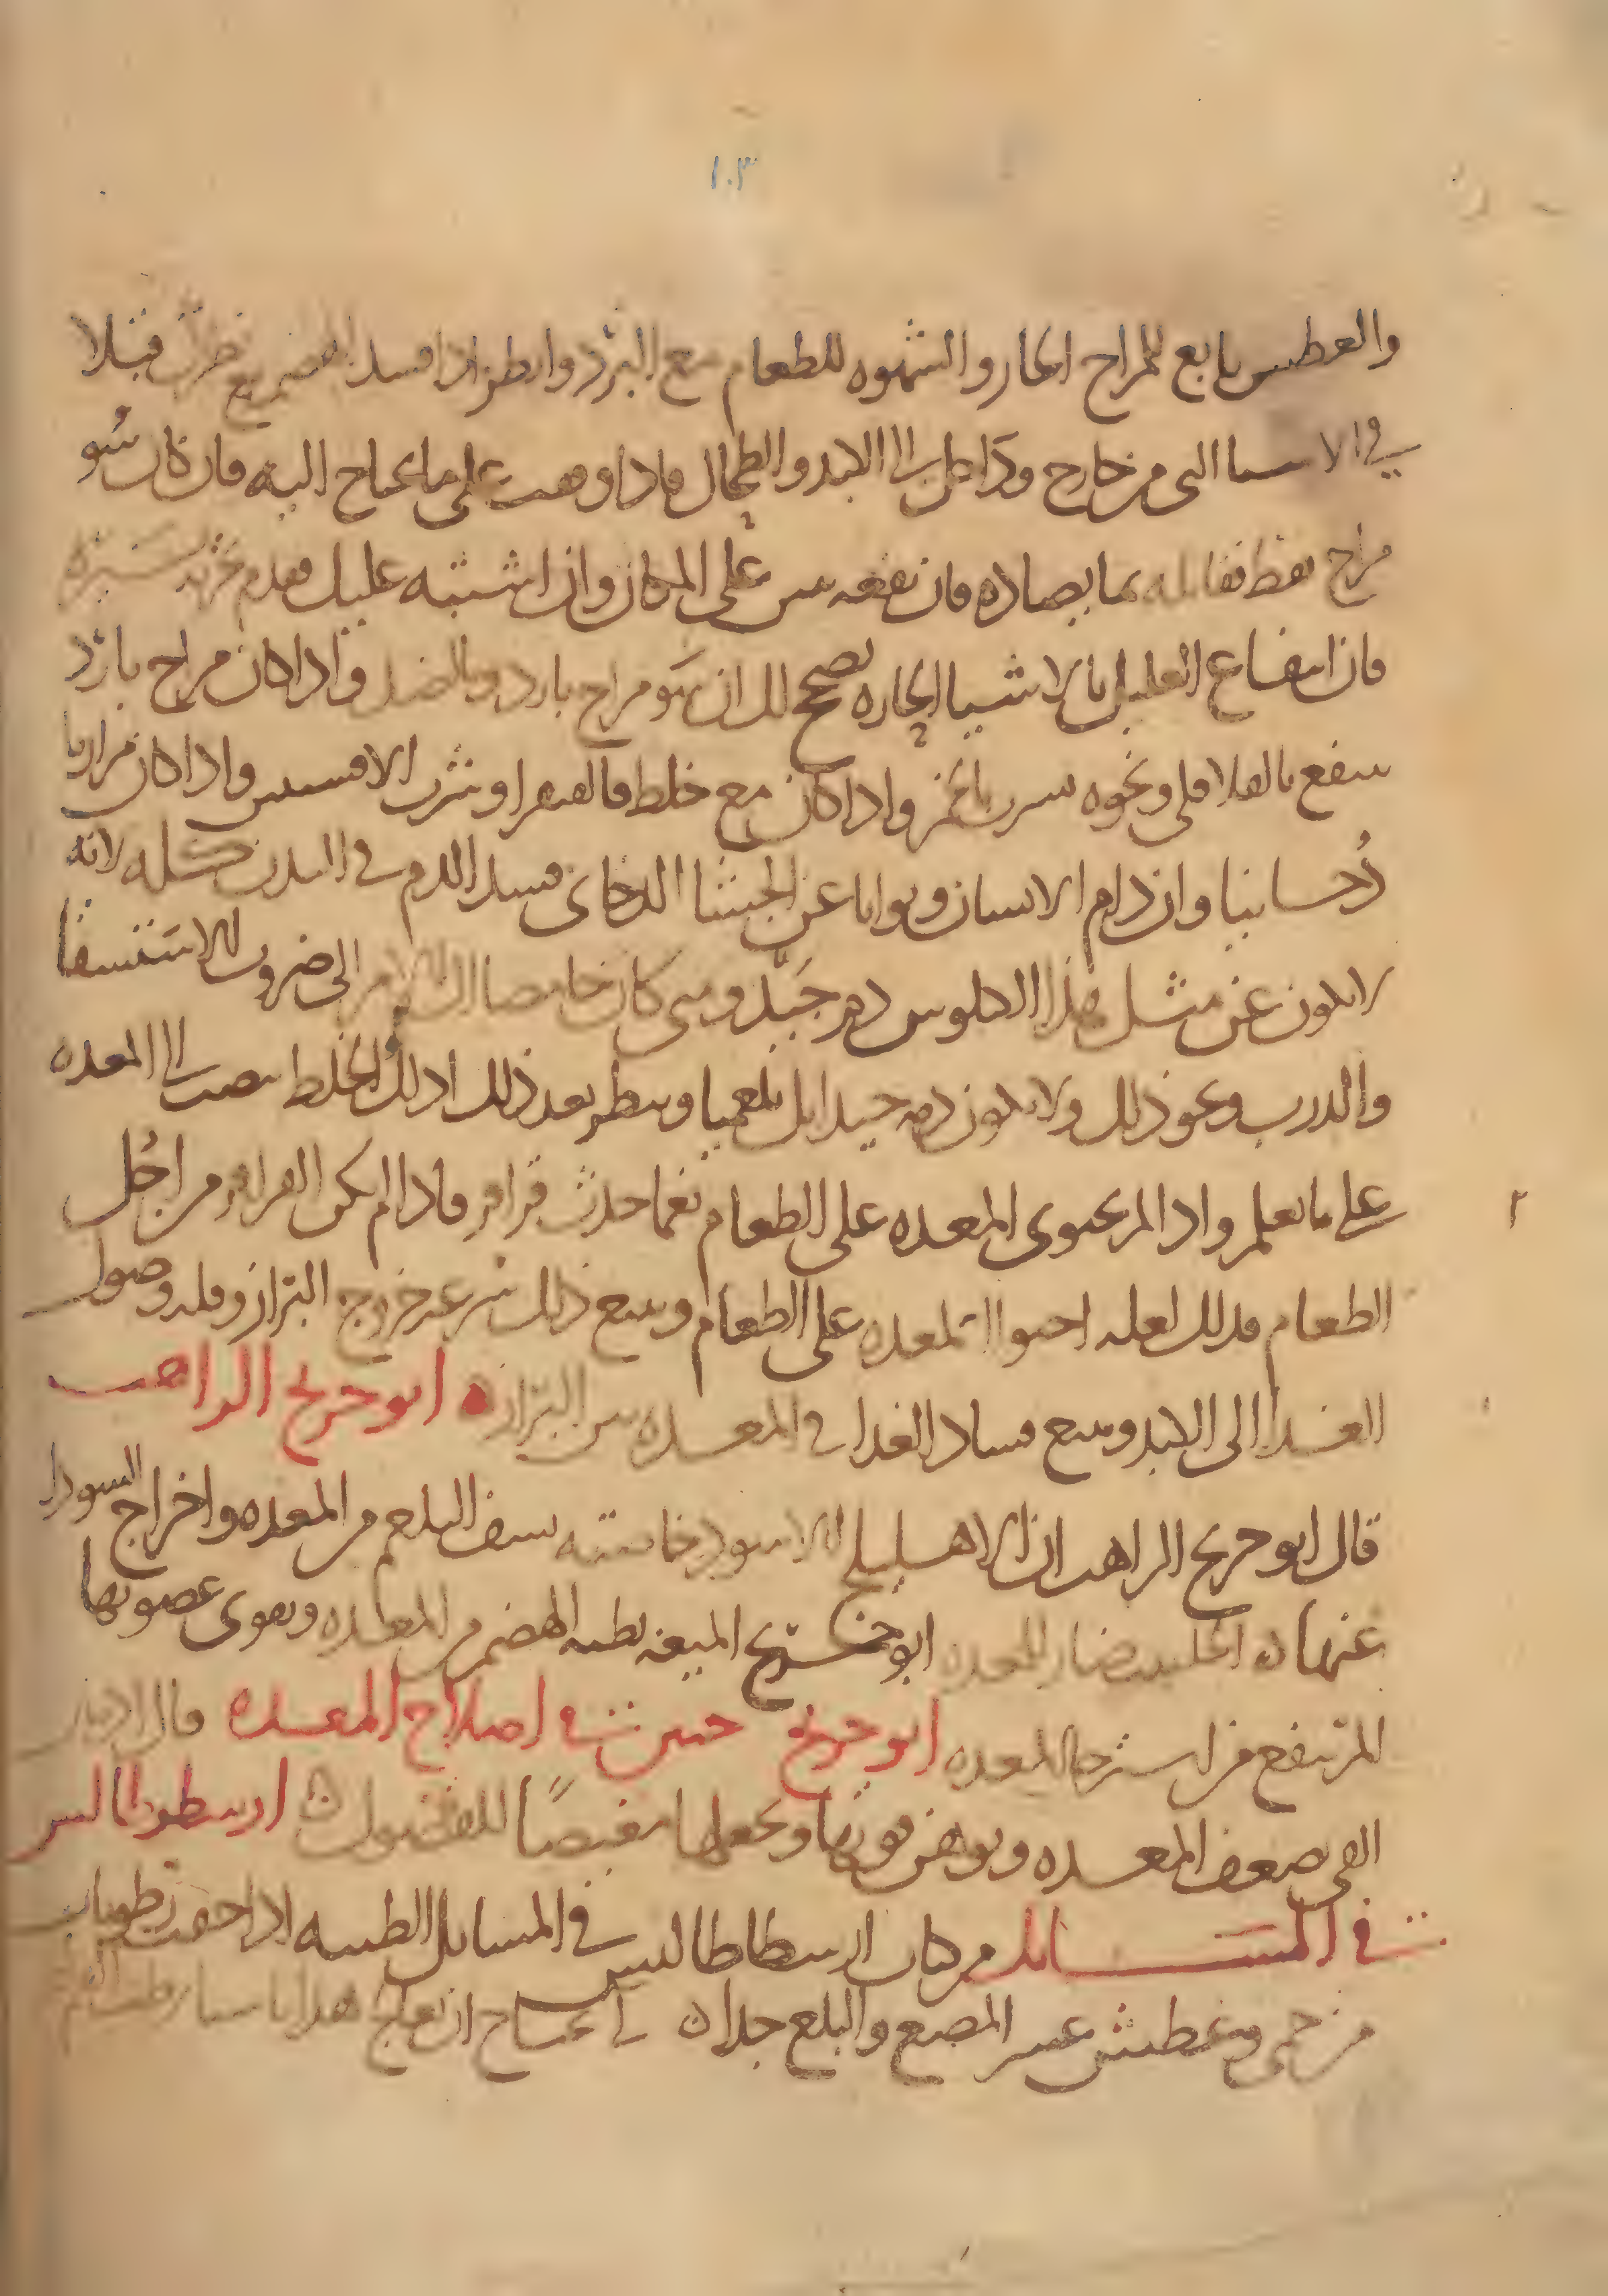 ١٠٣
والعطش تابع للمزاج الحار والشهوه للطعام مع البرد وانظر اذا فسد الهضم قبلا
في الاشيا التى من خارج وداخل الى الكبد والطحال فاذا وقفت على ما يحتاج اليه فان كان سُو
مزاج فقط فقابله بما يضاده فان نفعه على المكان وان اشتبه عليك فقدم تجربه يسيره
فان انتفاع العليل بالاشيا الحاره يصحح لك ان سو مزاج بارد وبالضد واذا كان مزاج بارد
ينفع بالفلافلى ونحوه بالخمر واذا كان مع خلط فالفيقرا وشرب الافسنتين واذا كان مرار
دُخانيا وان دام الانسان وتوانا عن الجشا الدخانى فسد الدم فى البدن كله لانه
لا يكون عن مثل هذا الكلوس دم جَيّد ومتى كان حامضا ال الامر الى ضروب الاستسقا
والذرب ونحو ذلك ولا يكون دمه جيدا بل بلغميا وينظر بعد ذلك الخلط ينصب الى المعده
على ما تعلم واذا لم يحتوى المعده على الطعام نعما حدث قراقر فاذا لم يكن القراقر من اجُل
الطعام فذلك لقله احتوا المعده على الطعام ويتبع ذلك سرعه خروج البراز وقله وصول
الغدا الى الكبد ويتبع فساد الغدا فى المعده نتن البراز ه ابو جريج الراهب
قال ابو جريج الراهب ان الاهليلج الاسود خاصته نشف البلغم من المعده واخراج السودا
عنها ه الحلتيت ضار للمعده ابو جريج الميعه بطيه الهضم من المعده ويقوى عصوبتها
المر ينفع من استرخا المعده ابو جريج حنين فى اصلاح المعده قال الادمان
القى يضعف المعده ويوهن قوتها ويجعلها مغيضًا للفضول ه ارسطوطالس
فى المسَــايل من كتاب ارسطاطاليس فى المسايل الطبيه اذا جفت رطوبات
من حمى وعطش عسر المضغ والبلع جدا ه لى يحتاج ان تعالج هذا باشيا ترطب الفم